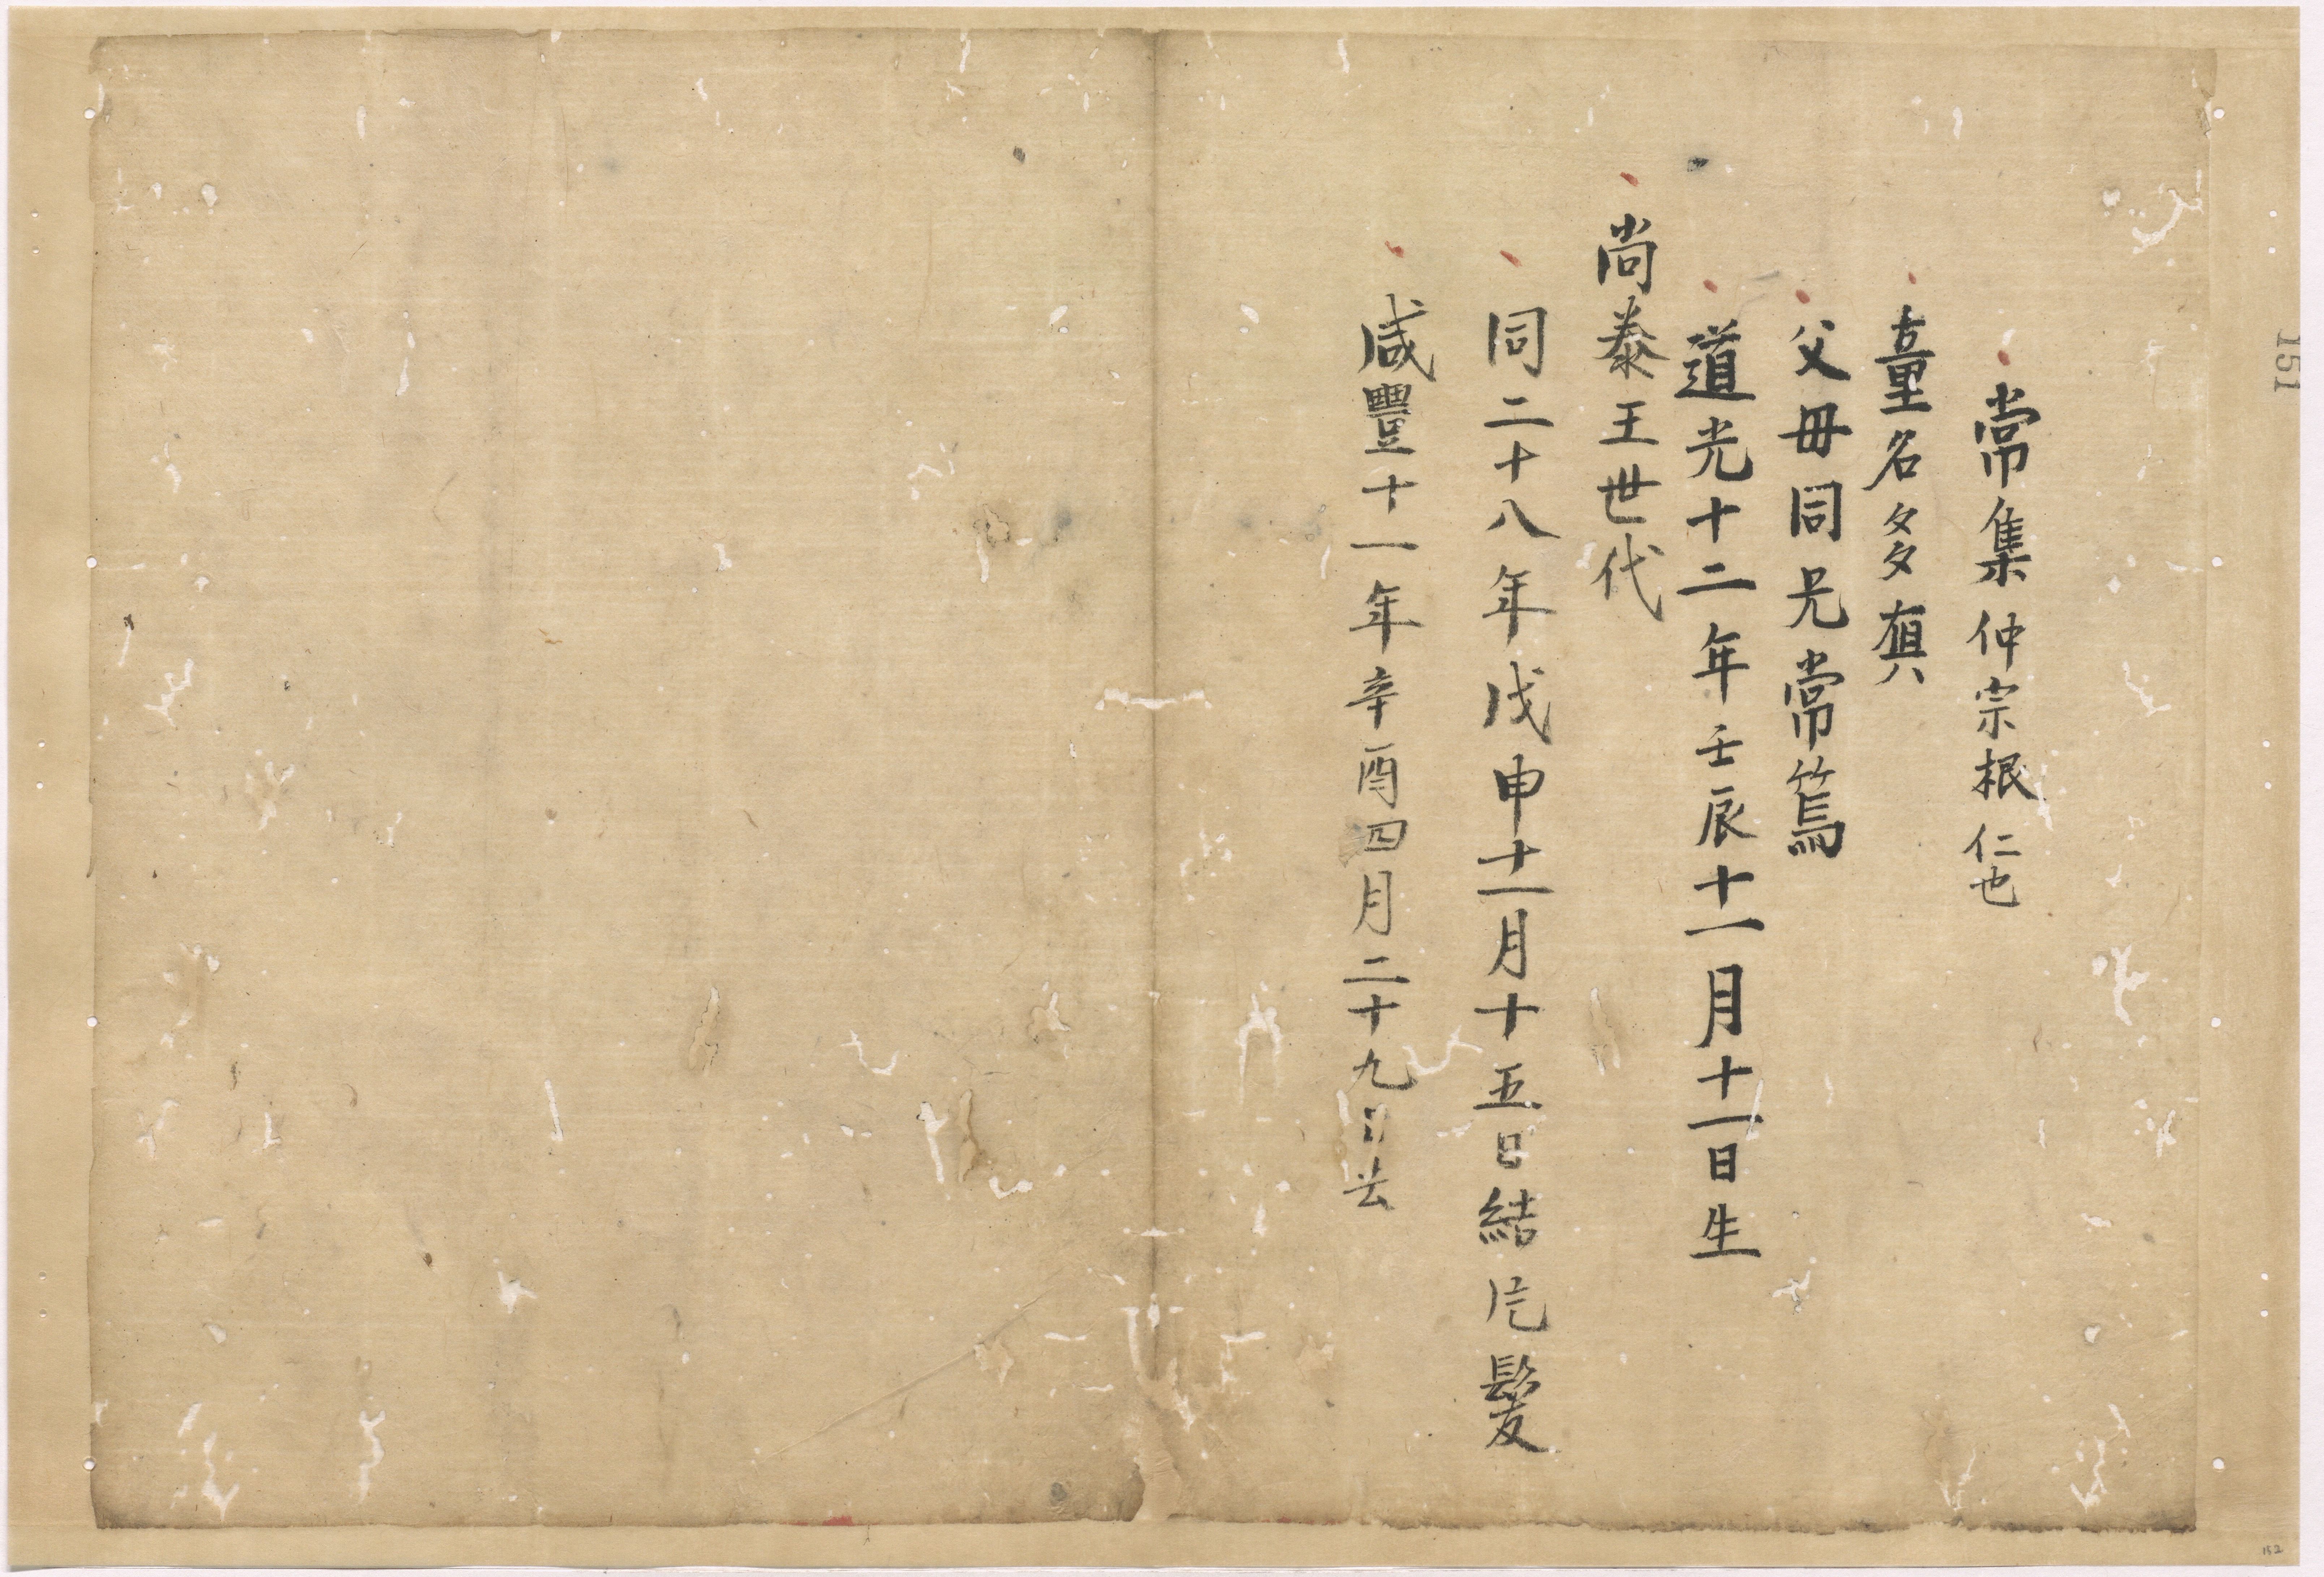 常集仲宗根仁也
童名多奠
父毋同兄常篤
道光十二年壬辰十一月十一日生
尚泰王世代
同二十八年戊申十一月十五日結片髮
咸豐十一年辛酉四月二十九日去
151
152